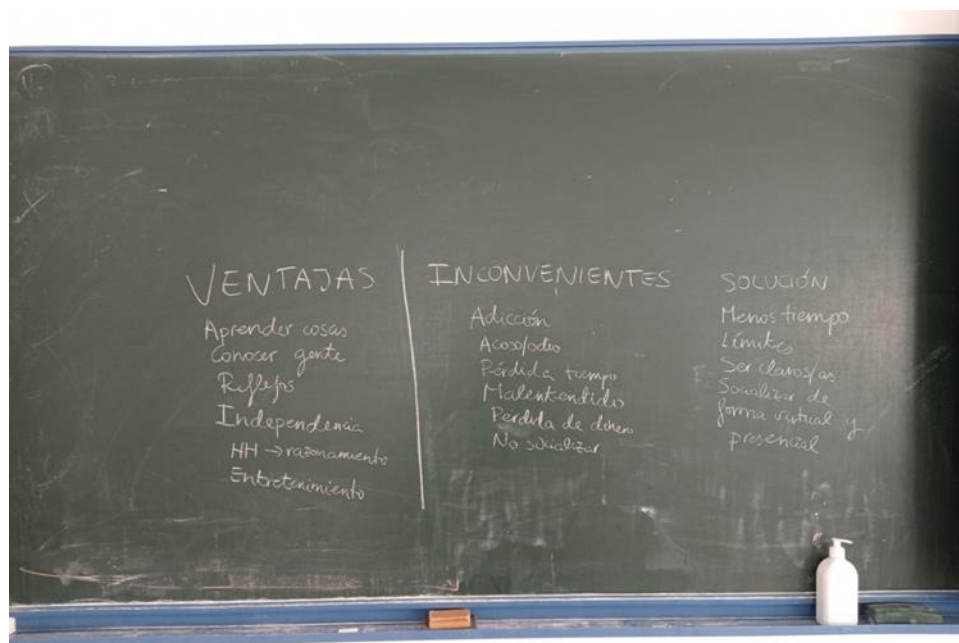 VENTAJAS
Aprender cosas
Conocer gente
Reflejos
Independencia
HH → razonamiento
Entretenimiento
INCONVENIENTES
Adicción
Acoso/odio
Pérdida tiempo
Malentendido
Pérdida de dinero
No socializar
SOLUCIÓN
Menos tiempo
Límites
Ser claros/as
Socializar de
forma virtual y
presencial